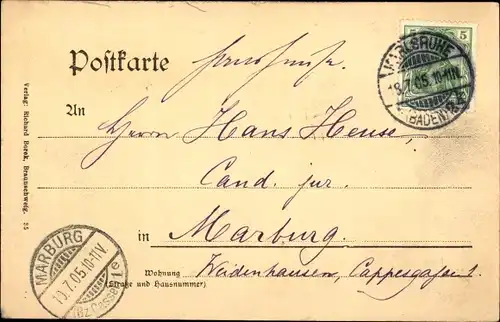 Postkarte Drucksache
5 5
KARLSRUHE
18.7.05.10-11V.
(BADEN) 2
An
Herrn Hans Heuse,
Cand. jur.
in Marburg
Wohnung Weidenhausen, Cappesgasse 1.
(Straße und Hausnummer)
MARBURG
19.7.05.10-11V.
(Bz. Cassel) 1 e
Verlag: Richard Borek, Braunschweig. 25